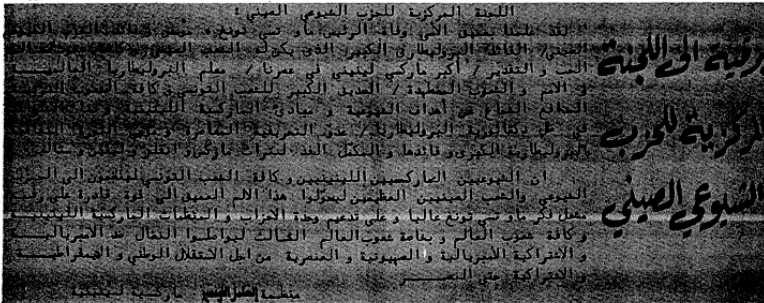 برقية الى اللجنة
المركزية للحزب
الشيوعي الصيني
اللجنة المركزية للحزب الشيوعي الصيني :
لقد علمنا بعميق الأسى وفاة الرئيس ماو تسي تونغ
الصيني / القائد البروليتاري الكبير الذي يكن له الشعب
الحب و التقدير / أكبر ماركسي لينيني في عصرنا / معلم البروليتاريا العالمية
و الامم و الشعوب المضطهدة / الصديق الكبير للشعب التونسي و كافة الشعوب
المدافع عن أهداف الشيوعية و مبادئ الماركسية اللينينية
في ظل دكتاتورية البروليتاريا / عدو التحريفية المعاصرة
البروليتارية الكبرى و قائدها و المكمل الفذ لثورات ماركس و انقلز و لينين و ستالين
ان الشيوعيين الماركسيين اللينينيين و كافة الشعب التونسي
الشيوعي والشعب الصينيين العظيمين ليحولوا هذا الالم العميق الى قوة قادرة على
مشعل فكر ماو تسي تونغ عاليا و على تدعيم وحدة الاحزاب و المنظمات الماركسية اللينينية
و كافة شعوب العالم و بخاصة شعوب العالم الثالث ليواصلوا النضال ضد الامبريالية
و الاشتراكية الامبريالية و الصهيونية و العنصرية من اجل الاستقلال الوطني و الديمقراطية
و الاشتراكية حتى النصر
منظمة العامل التونسي ماركسية لينينية